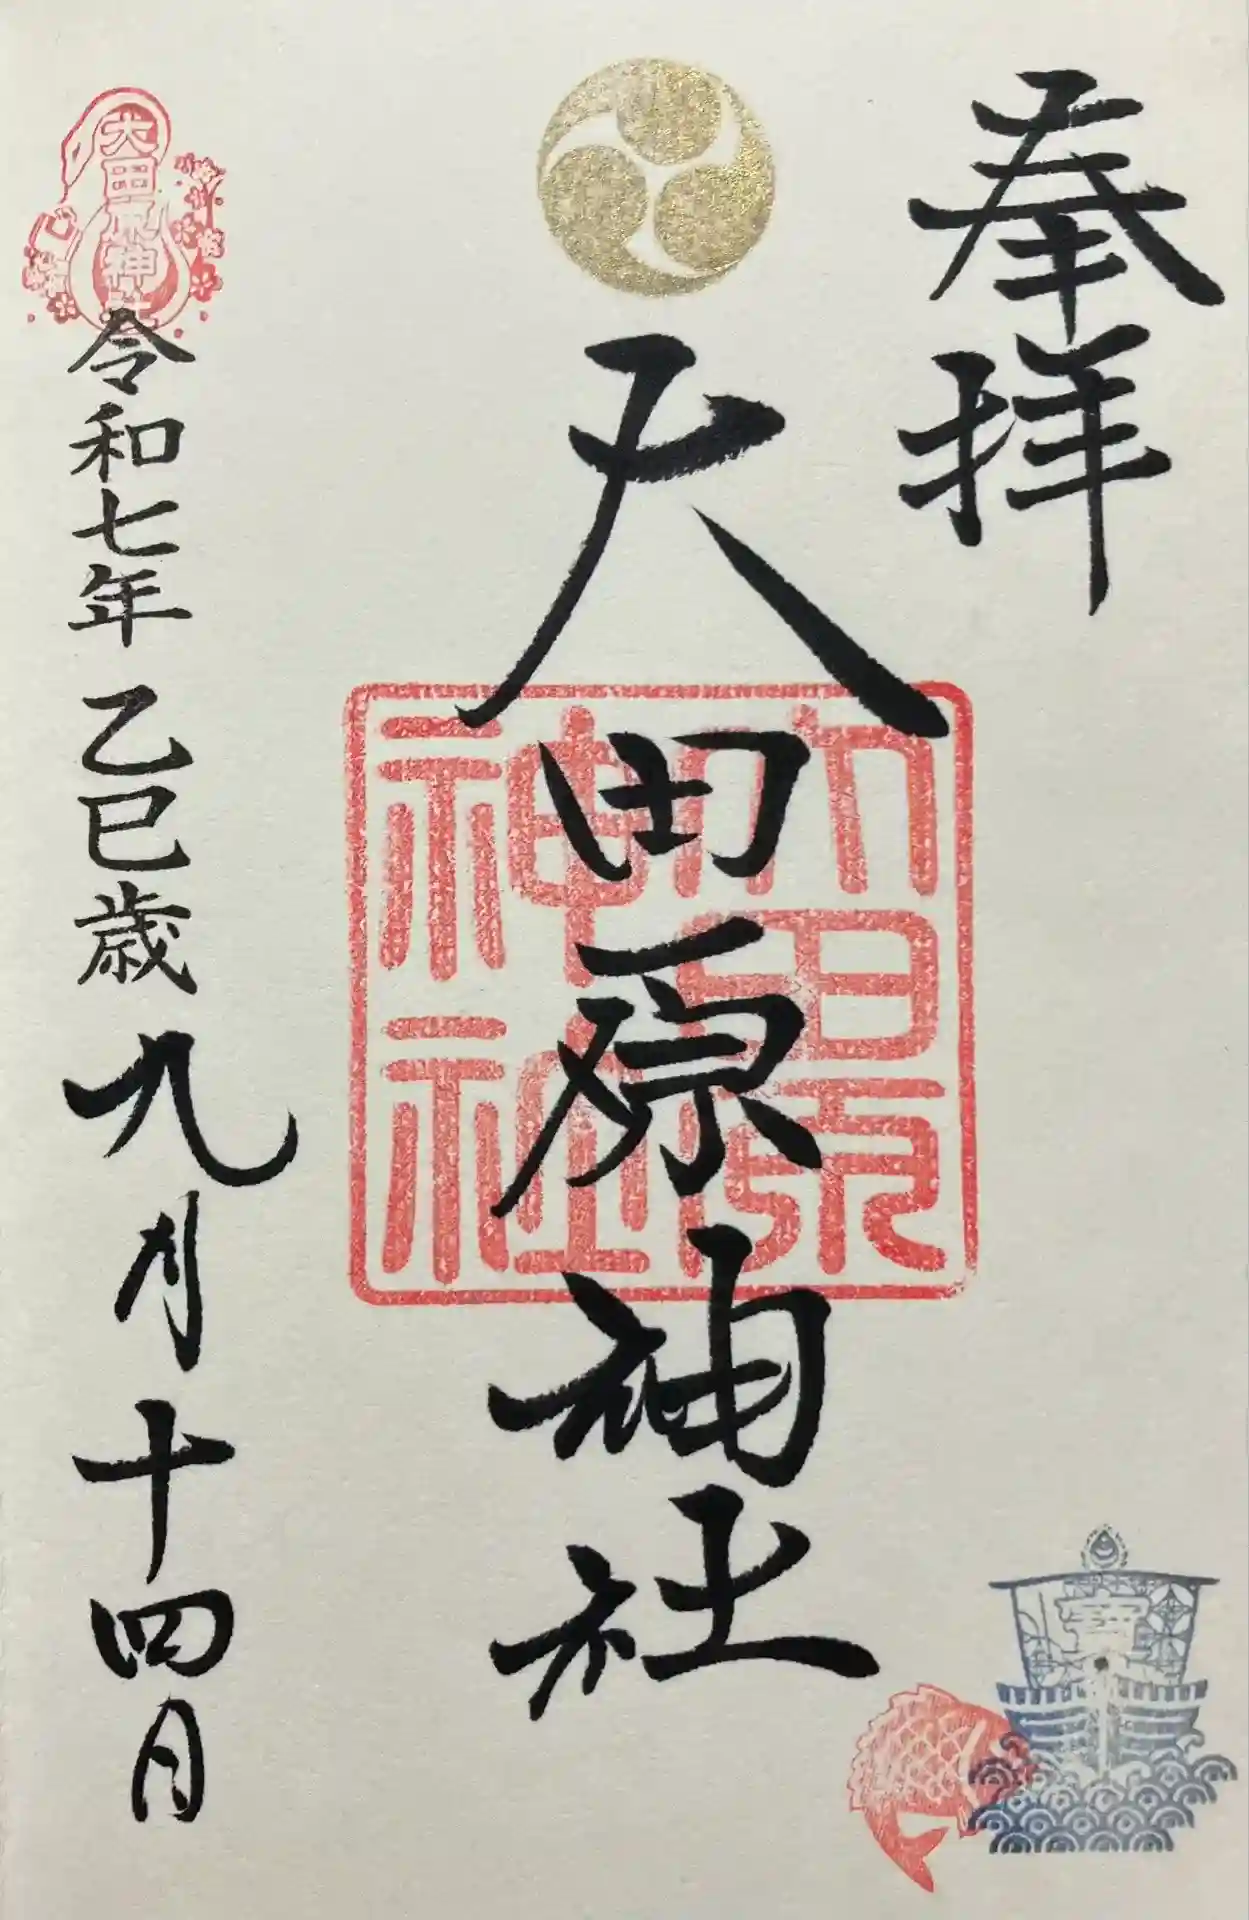 奉拝
大田原神社
大田原神社
令和七年 乙巳歳 九月十四日
大田原神社
寶